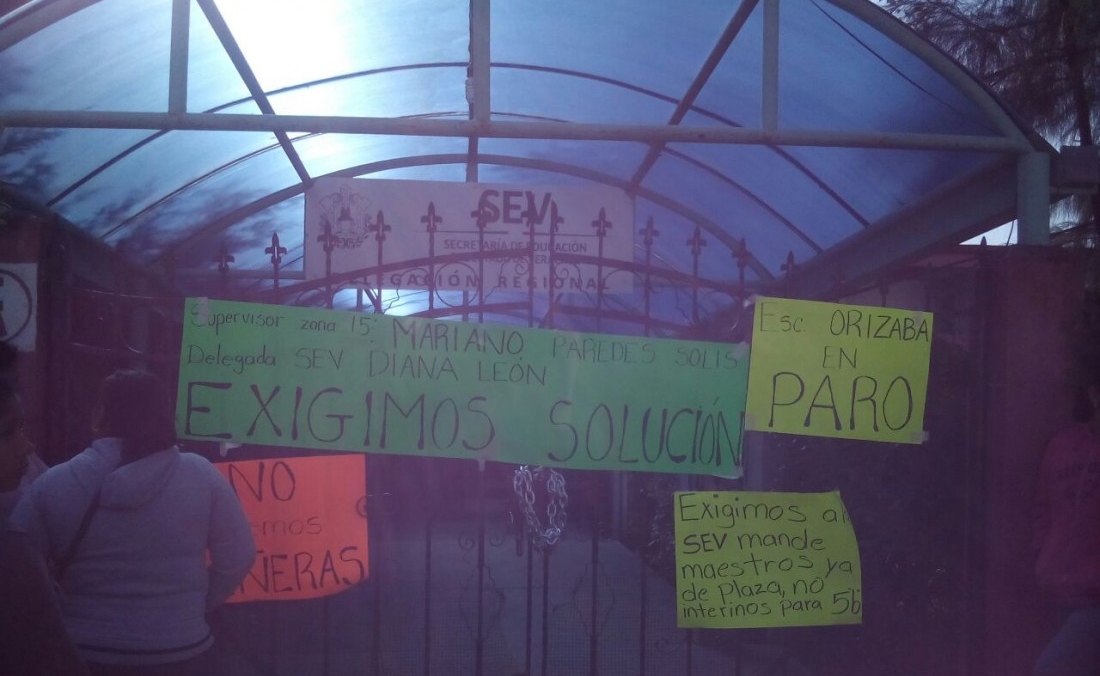 SEV
SECRETARÍA DE EDUCACIÓN
DELEGACIÓN REGIONAL
Supervisor zona 15: MARIANO PAREDES SOLIS
Delegada SEV DIANA LEÓN
EXIGIMOS SOLUCIÓN
Esc. ORIZABA
EN
PARO
NO
emos
ÑERAS
Exigimos al
SEV mande
maestros ya
de plaza, no
interinos para 5b